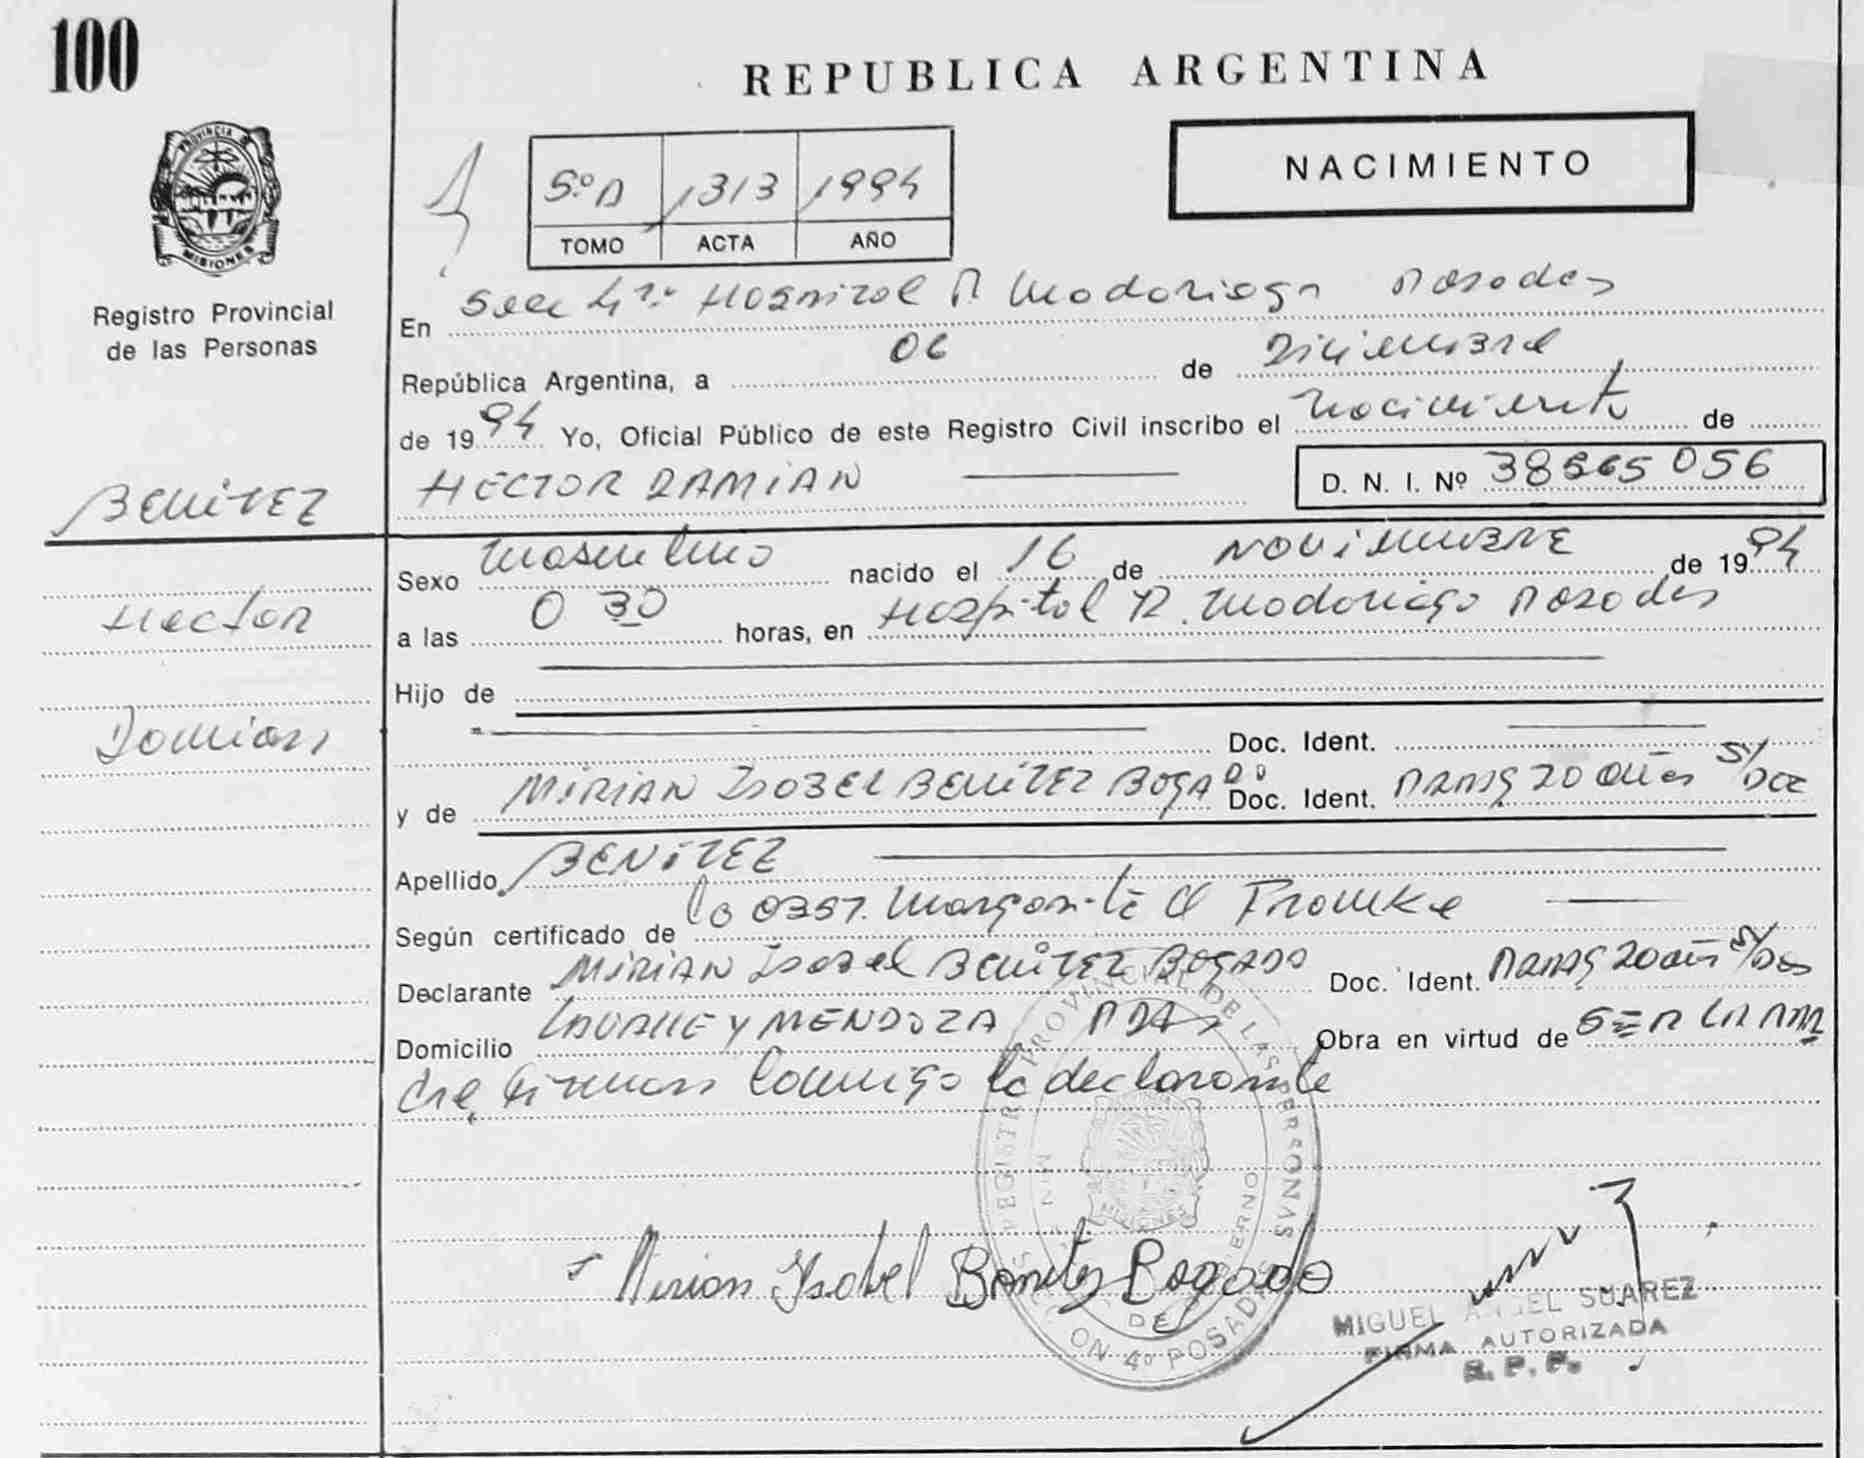 100
REPUBLICA ARGENTINA
NACIMIENTO
5º A 1313 1994
TOMO ACTA AÑO
PROVINCIA DE
MISIONES
Registro Provincial
de las Personas
En Secc 4ta Hospital R Madariaga Posadas
República Argentina, a 06 de Diciembre
de 1994 Yo, Oficial Público de este Registro Civil inscribo el Nacimiento de
HECTOR DAMIAN
D. N. I. Nº 38565056
BENITEZ
Hector
Damian
Sexo Masculino nacido el 16 de NOVIEMBRE de 1994
a las 0 30 horas, en Hospital R. Madariaga Posadas
Hijo de
Doc. Ident.
y de MIRIAN ISABEL BENITEZ BOGADO Doc. Ident. 20 años S/Doc
Apellido BENITEZ
Según certificado de la Obst. Margarita Fromke
Declarante MIRIAN Isabel BENITEZ BOGADO Doc. Ident. 20 años S/Doc
Domicilio LAVALLE Y MENDOZA PDAS Obra en virtud de SER LA MA
dre, Firman Conmigo la declarante
REGISTRO PROVINCIAL DE LAS PERSONAS
Mirian Isabel Benitez Bogado
DE GOBIERNO
4º POSADAS
MIGUEL ANGEL SUAREZ
FIRMA AUTORIZADA
R. P. P.